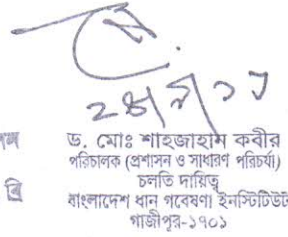 ড. মোঃ শাহজাহান কবীর
পরিচালক (প্রশাসন ও সাধারণ পরিচর্যা)
চলতি দায়িত্ব
বি
বাংলাদেশ ধান গবেষণা ইনস্টিটিউট
গাজীপুর-১৭০১